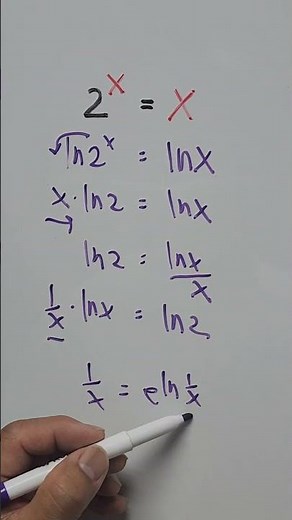 2^x = x
ln2^x = lnx
x·ln2 = lnx
ln2 = lnx/x
1/x·lnx = ln2
1/x = e ln 1/x